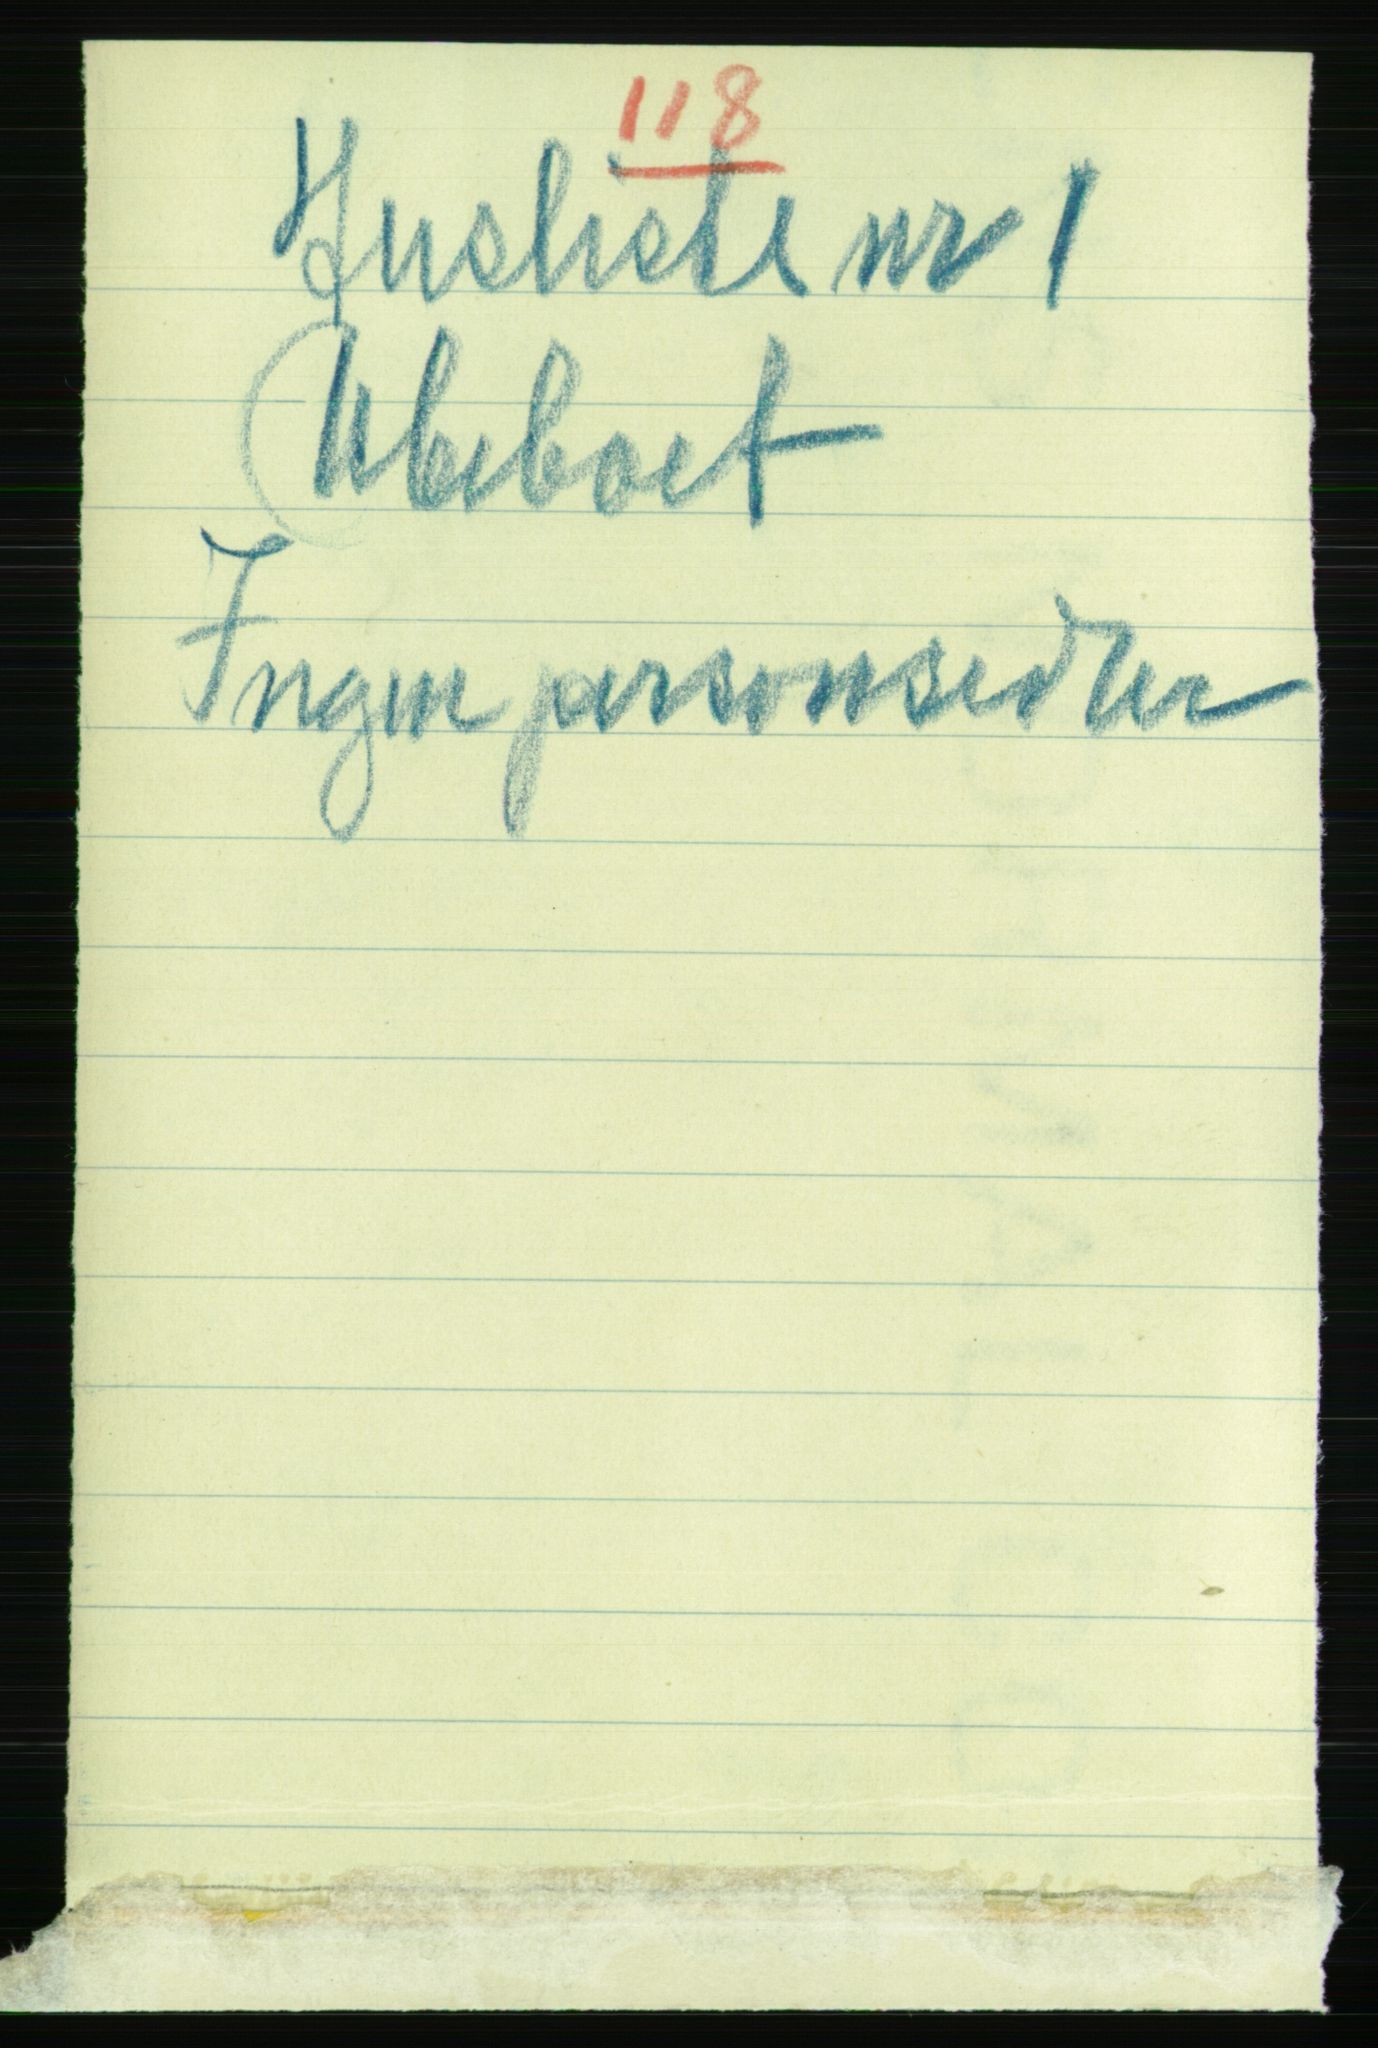 118
Husliste nr 1
Ubeboet
Ingen personsedler